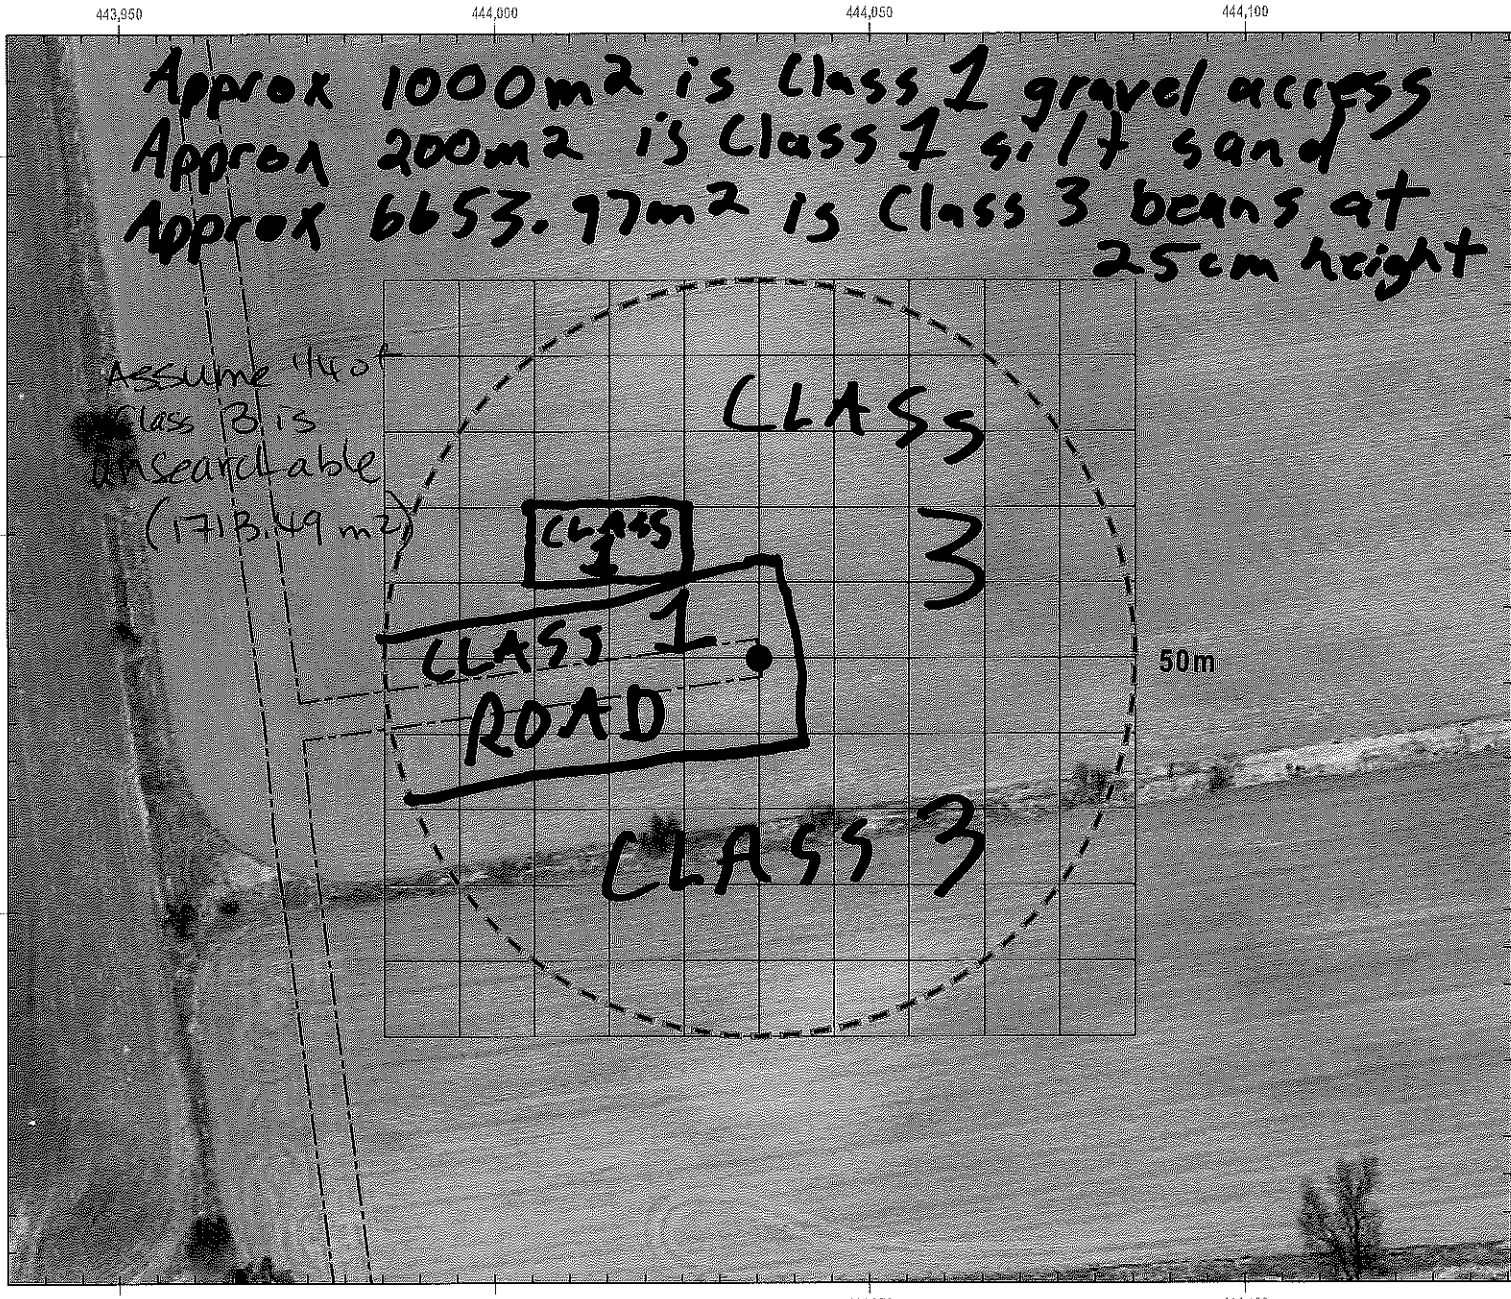 443,950 444,000 444,050 444,100
Approx 1000m2 is Class 1 gravel access
Approx 200m2 is Class 1 silt sand
Approx 6653.97m2 is Class 3 beans at
25cm height
Assume 1/4 of
Class 3 is
unsearchable
(1713.49 m2)
CLASS
3
CLASS
1
CLASS 1
ROAD
50m
CLASS 3